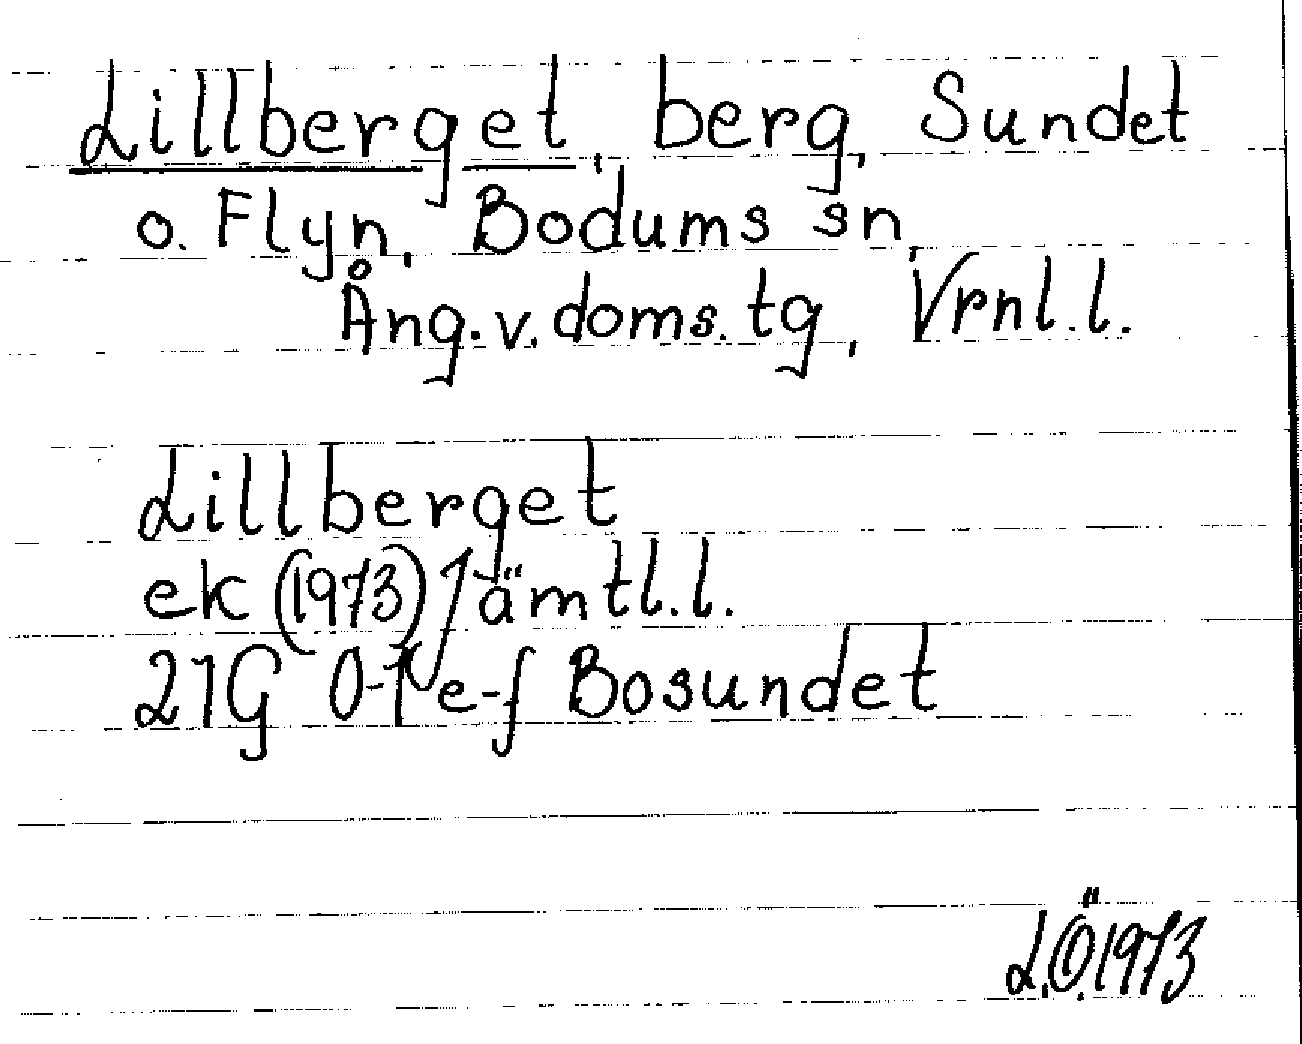 Lillberget, berg, Sundet
o. Flyn, Bodums sn,
Ång.v.doms.tg, Vrnl.l.
Lillberget
ek (1973) Jämtl.l.
21G 0-1 e-f Bosundet
L.Ö.1973